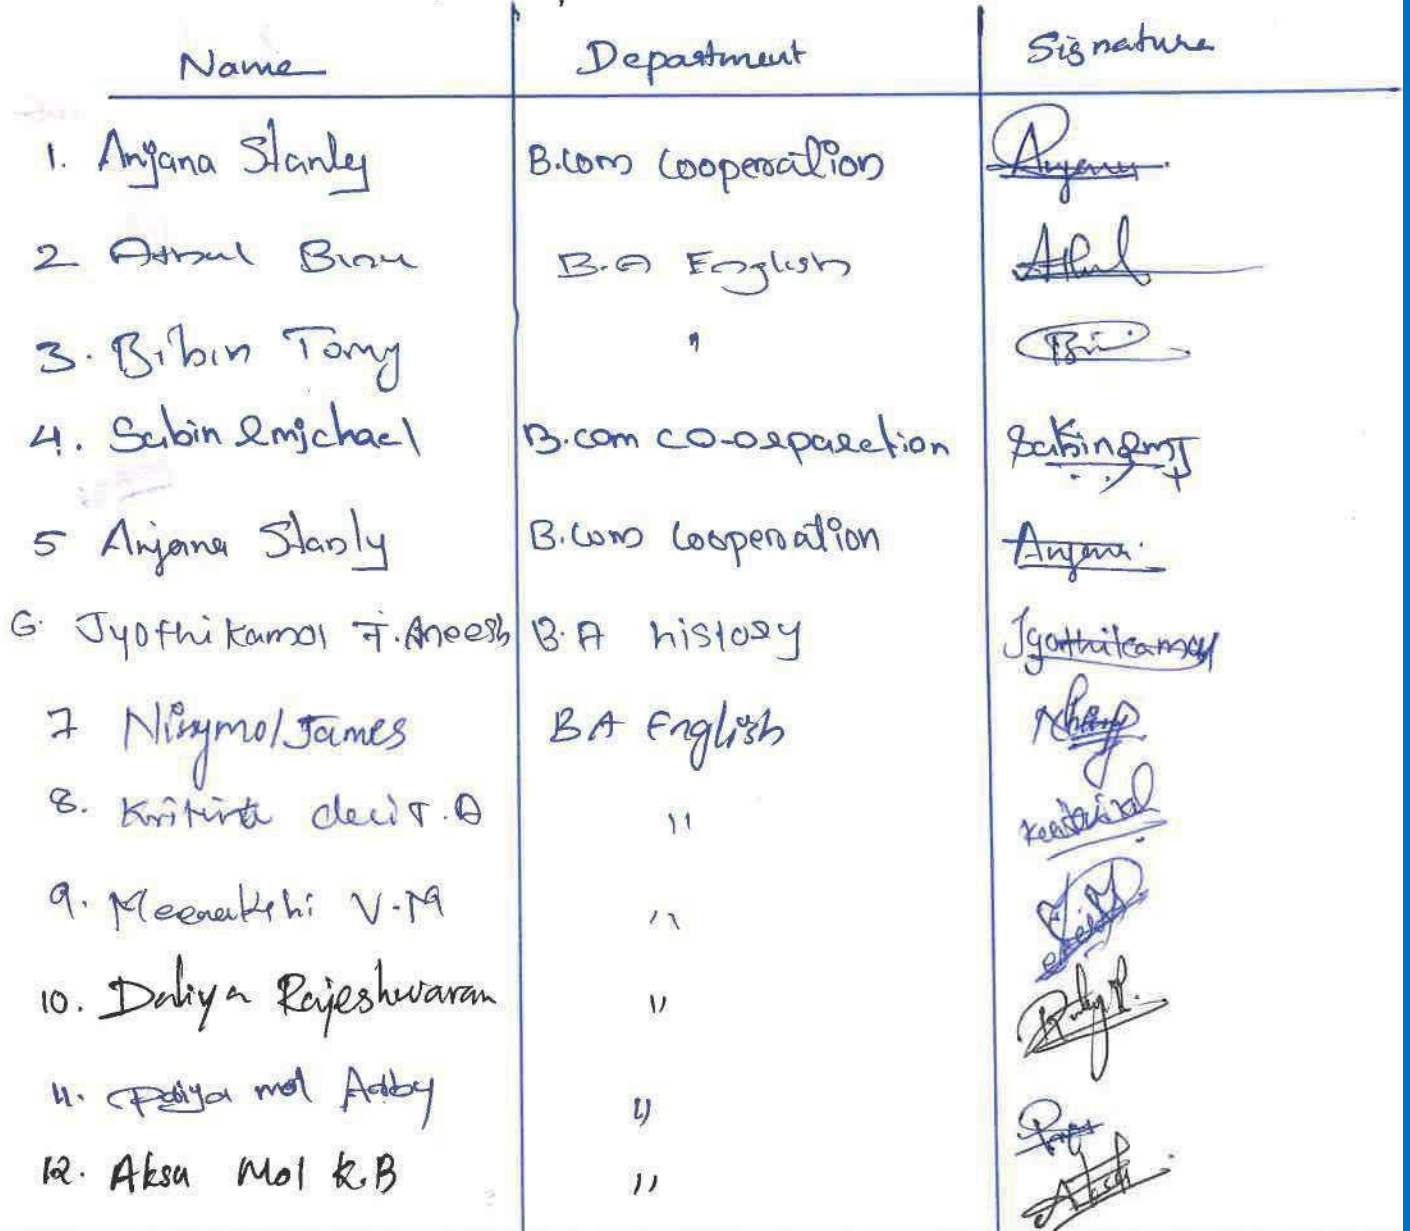 Name Department Signature
1. Anjana Stanley B.com Cooperation Anjana
2 Athul Binu B.A English Athul
3. Bibin Tomy " Bi
4. Sabin Emichael B.com co-oeparection SabinEmj
5 Anjana Stanly B.com Cooperation Anjana
6. Jyothikamol T.Aneesh B.A history Jyothikamol
7 Ninymol James BA English
8. devi T.A "
9. Meenakshi V.M "
10. Daliya Rajeshwaran " Daliya R.
11. Priya mol "
12. Aksa Mol K.B "